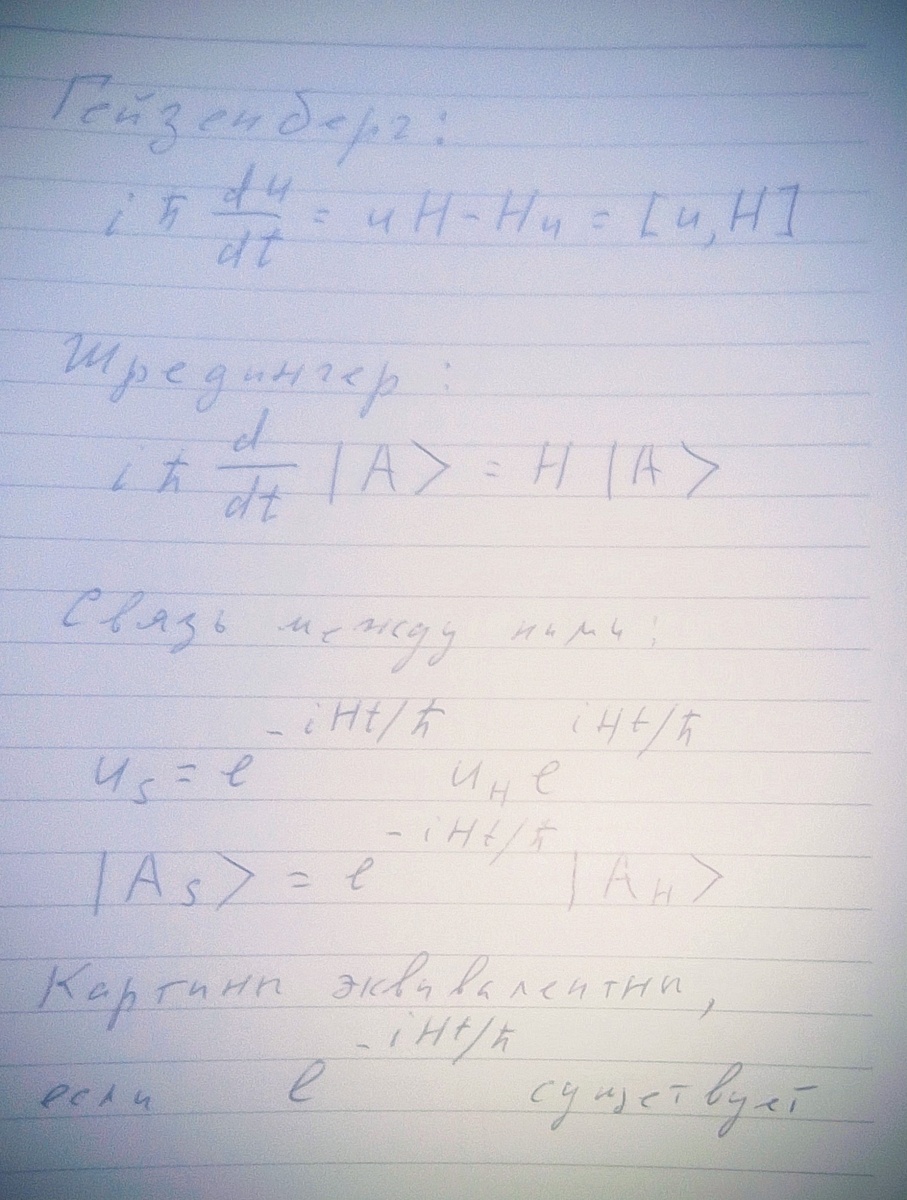 Гейзенберг:
iħ du/dt = uH - Hu = [u, H]
Шредингер:
iħ d/dt |A> = H |A>
Связь между ними:
u_S = e^{-iHt/ħ} u_H e^{iHt/ħ}
|A_S> = e^{-iHt/ħ} |A_H>
Картины эквивалентны,
если e^{-iHt/ħ} существует